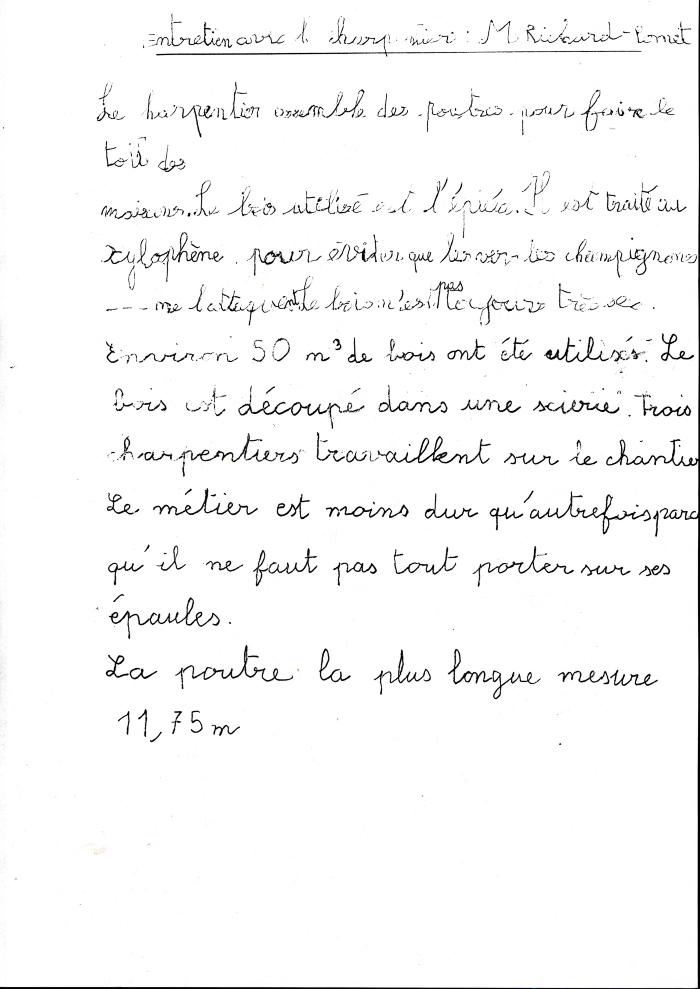 Entretien avec l charpentier : M Richard-Pomet
Le charpentier assemble des poutres pour faire le
toit des
maisons. Le bois utilisé est l'épicéa. Il est traité au
xylophène pour éviter que les vers les champignons
--- ne l'attaquent. Le bois n'est pas toujours très sec.
Environ 50 m³ de bois ont été utilisés. Le
bois est découpé dans une scierie. Trois
charpentiers travaillent sur le chantier
Le métier est moins dur qu'autrefois parc
qu'il ne faut pas tout porter sur ses
épaules.
La poutre la plus longue mesure
11,75 m